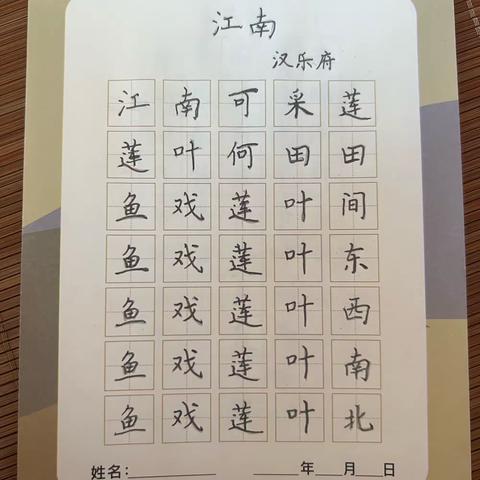 江南
汉乐府
江南可采莲
莲叶何田田
鱼戏莲叶间
鱼戏莲叶东
鱼戏莲叶西
鱼戏莲叶南
鱼戏莲叶北
姓名:__________ ______年___月___日